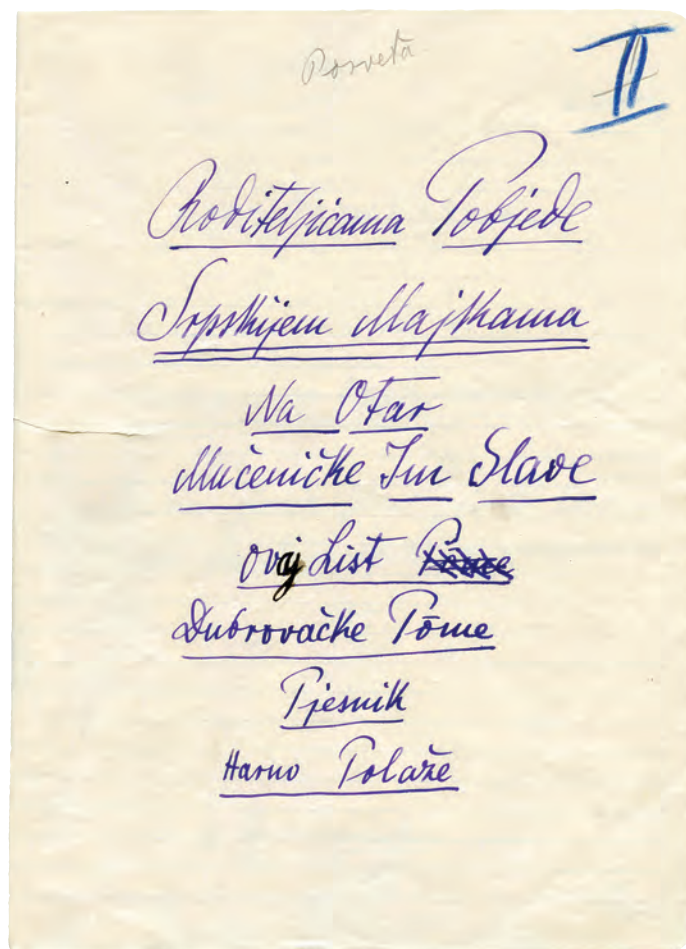 Posveta
II
Roditeljicama Pobjede
Srpskijem Majkama
Na Otar
Mučeničke Im Slave
ovaj List
Dubrovačke Pōme
Pjesnik
Harno Polaže